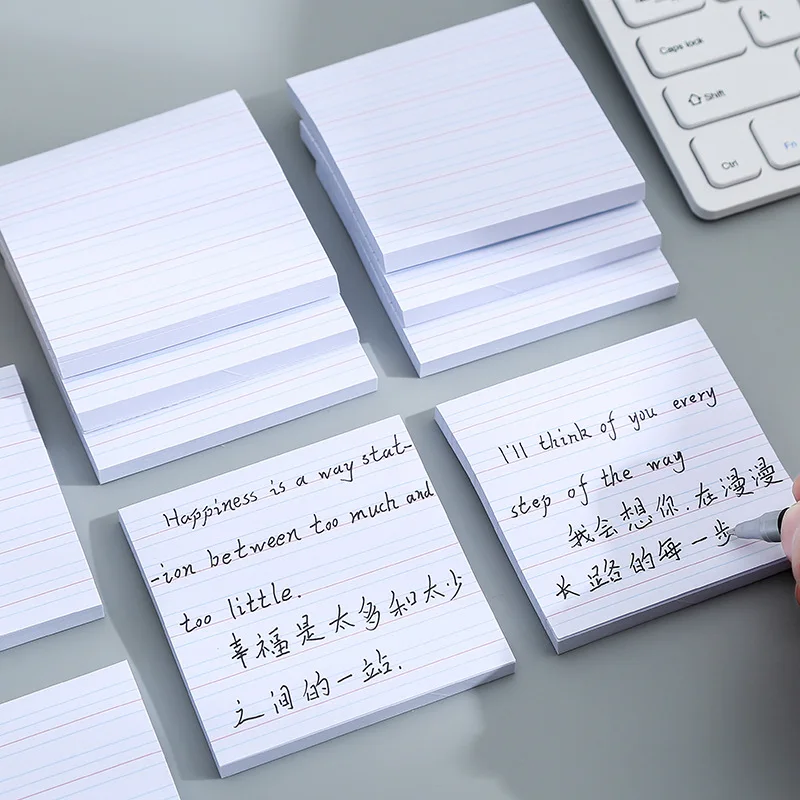 Caps lock
A
Shift
Ctrl
Fn
Happiness is a way stat-
-ion between too much and
too little.
幸福是太多和太少
之间的一站.
I'll think of you every
step of the way
我会想你.在漫漫
长路的每一步